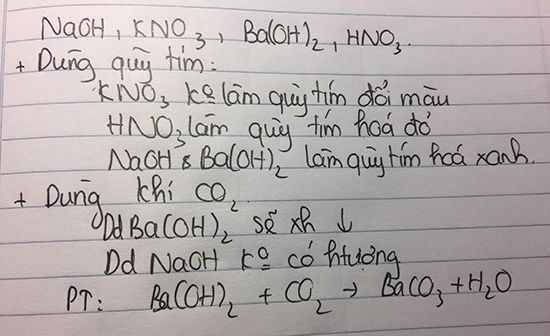 NaOH, KNO₃, Ba(OH)₂, HNO₃.
+ Dùng quỳ tím:
KNO₃ kº làm quỳ tím đổi màu
HNO₃ làm quỳ tím hoá đỏ
NaOH & Ba(OH)₂ làm quỳ tím hoá xanh.
+ Dùng khí CO₂
Dd Ba(OH)₂ sẽ xh ↓
Dd NaOH kº có htượng
PT: Ba(OH)₂ + CO₂ → BaCO₃ + H₂O